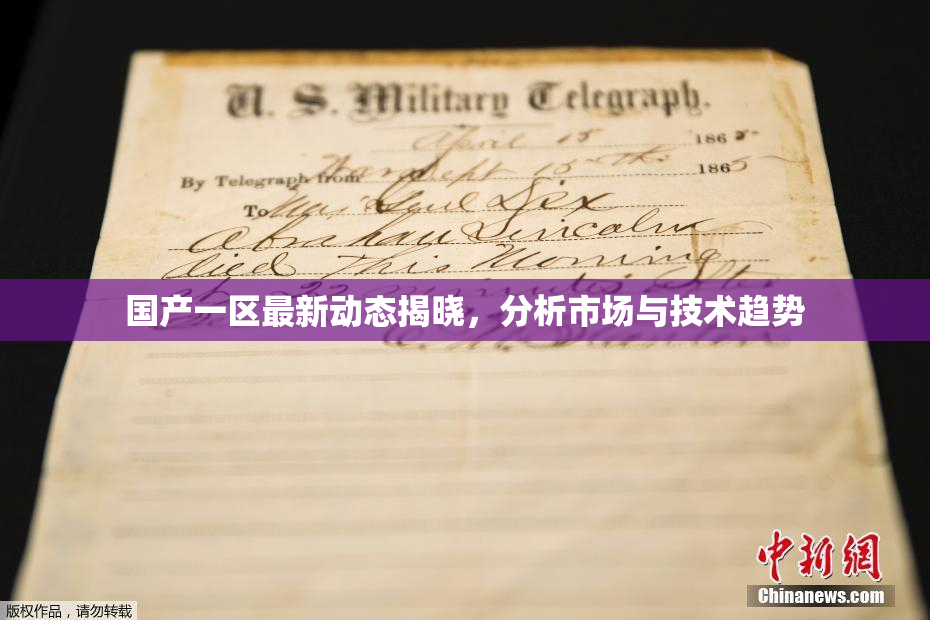 U. S. Military Telegraph.
April 15 1865
By Telegraph from War Dept 15th 1865
To Maj Genl Dix
Abraham Lincoln
died This Morning
at 22 minutes after
国产一区最新动态揭晓，分析市场与技术趋势
中新网
Chinanews.com
版权作品，请勿转载